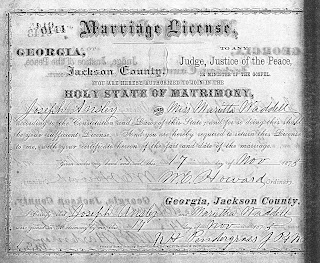 Marriage License.
GEORGIA, TO ANY
Judge, Justice of the Peace,
Jackson County. OR MINISTER OF THE GOSPEL
YOU ARE HEREBY AUTHORIZED TO JOIN IN THE
HOLY STATE OF MATRIMONY,
Joseph and Miss Marietta Waddell
according to the Constitution and Laws of this State, and for so doing this shall
be your sufficient License. And you are hereby required to return this License
to me, with your Certificate hereon of the fact and date of the marriage.
Given under my hand and seal, this 17 day of Nov 187
W.C. Howard Ordinary.
Georgia, Jackson County.
Joseph and Marietta Waddell
were joined in Matrimony by me, this 17 day of Nov
N H Pendergrass J.P.